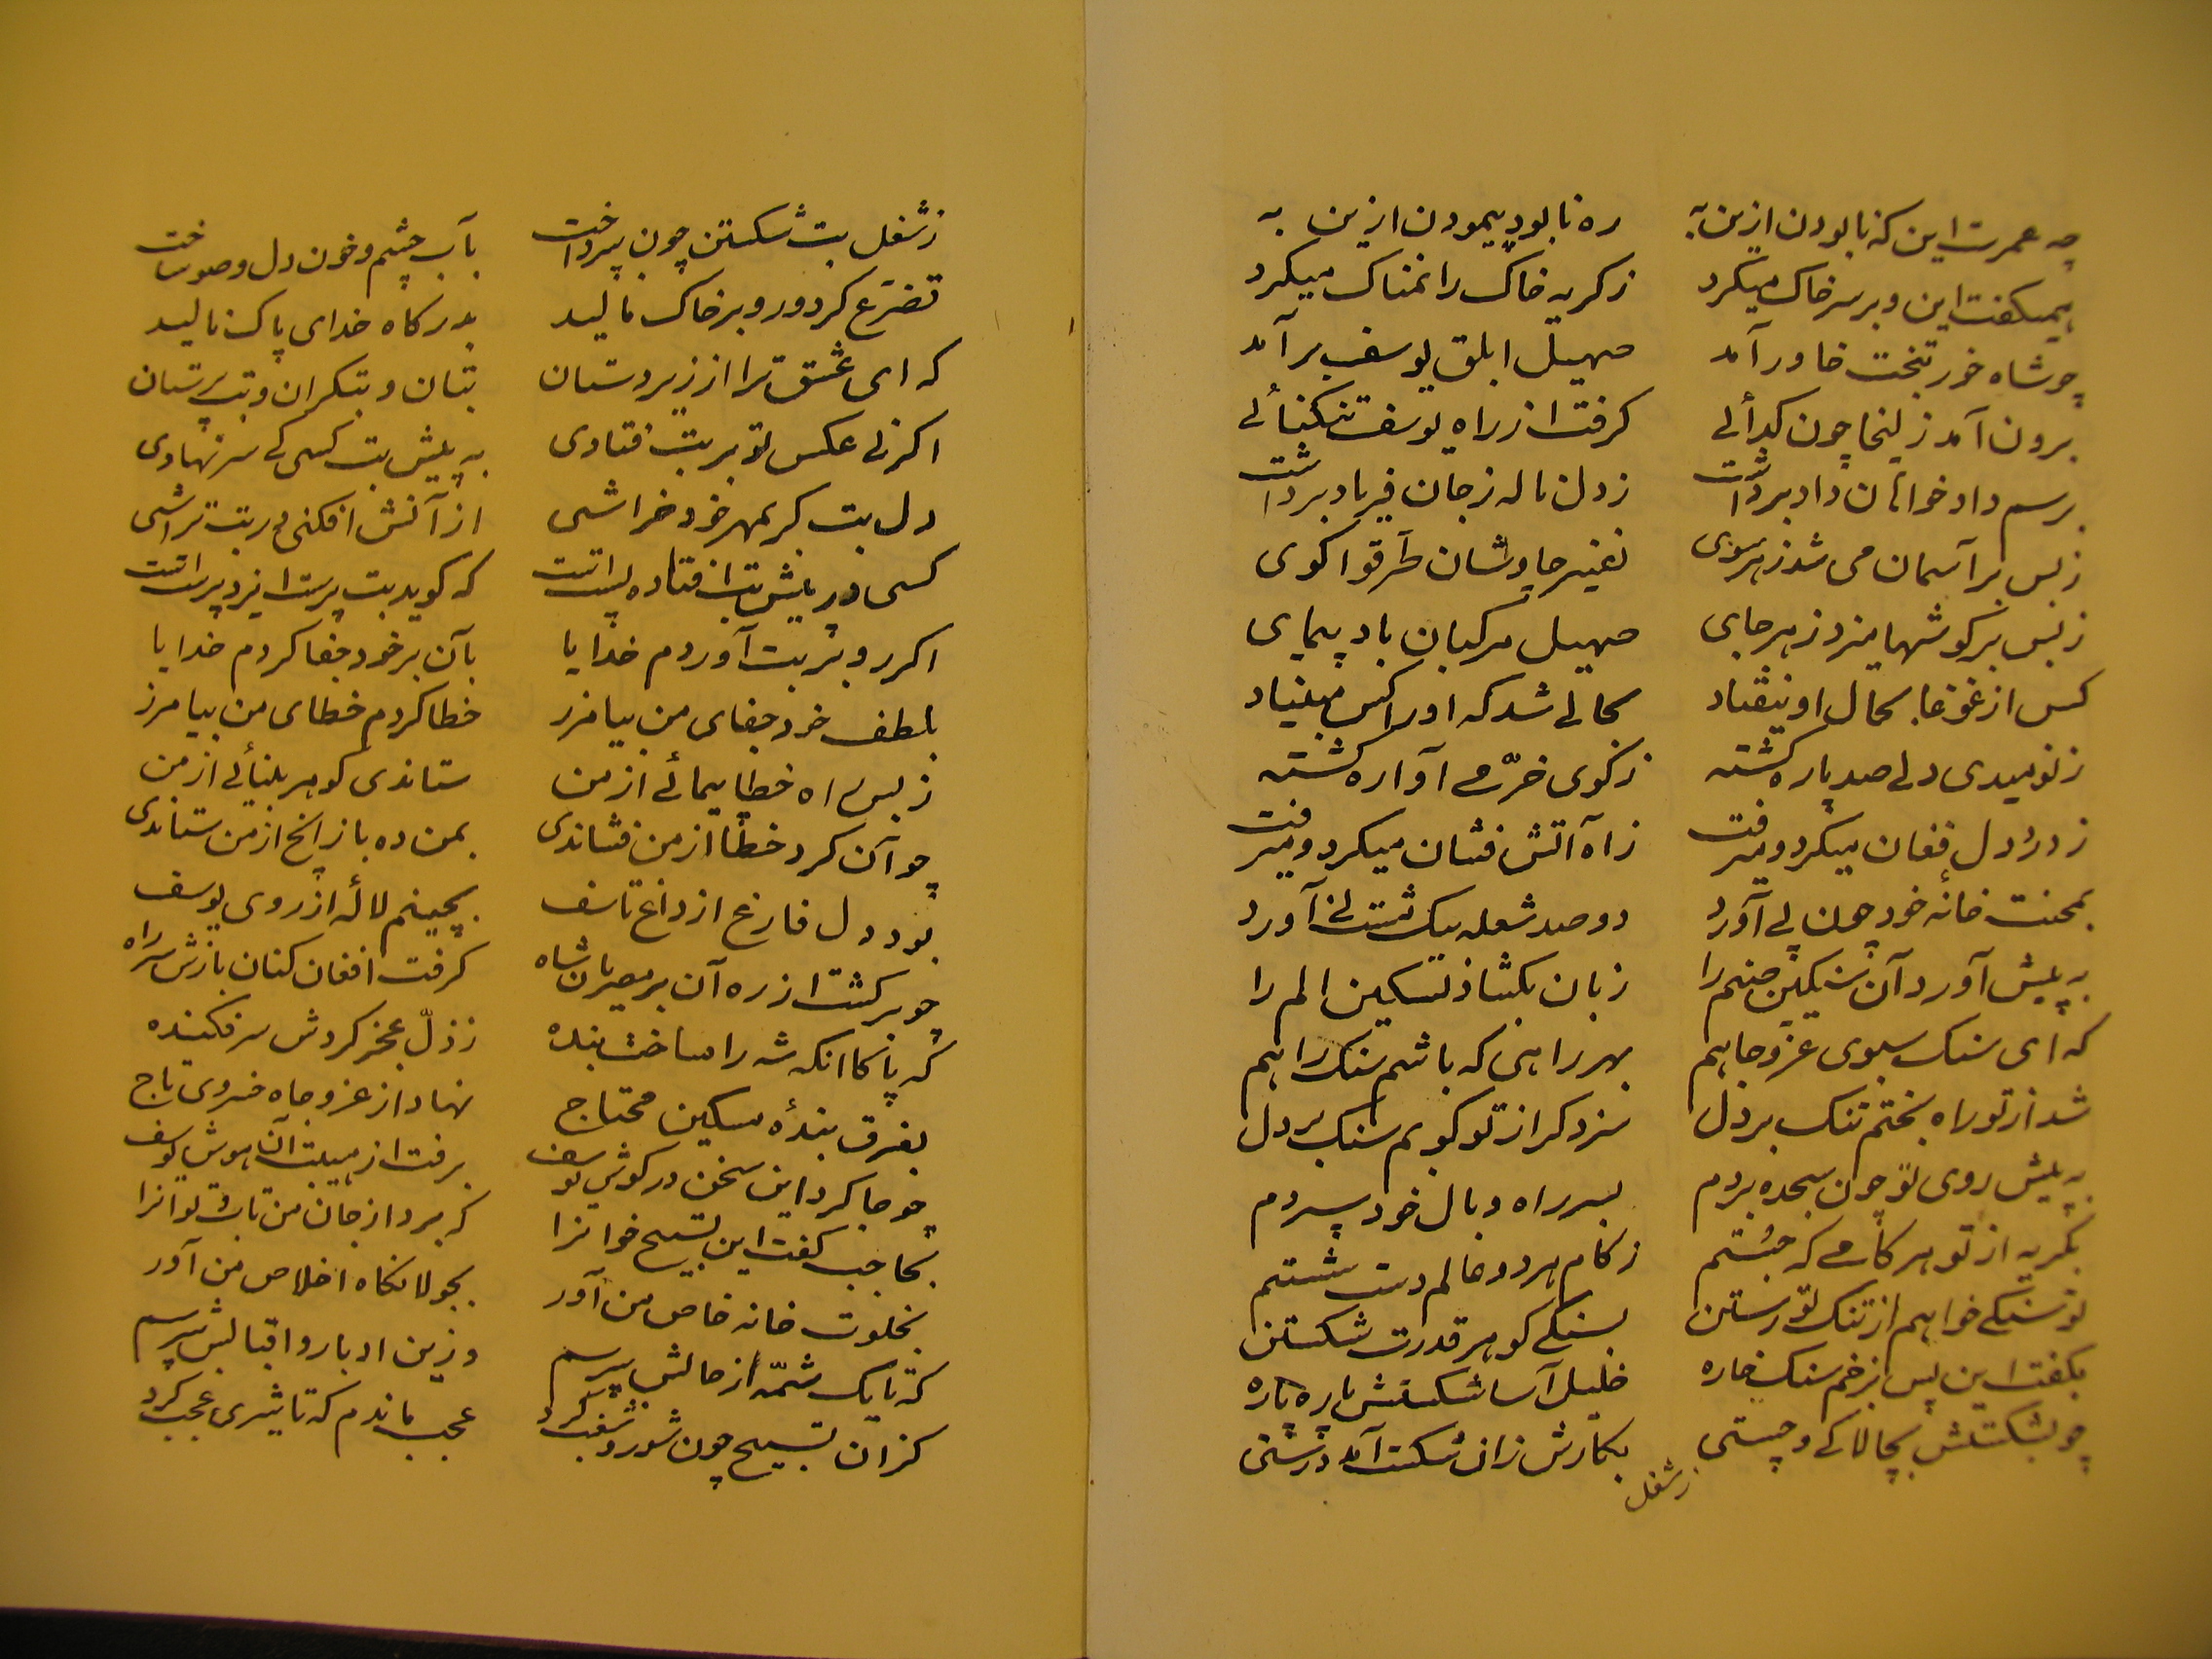 چه عمرست این که نابودن ازین به ره نابود پیمودن ازین به
همیکفت این و بر سر خاک میکرد زکریه خاک را نمناک میکرد
چو شاه خور تبخت خاور آمد صهیل ابلق یوسف برآمد
برون آمد زلیخا چون کدائی کرفت از راه یوسف تنکنائی
برسم داد خواهان داد برداشت ز دل ناله ز جان فریاد برداشت
زبس بر آسمان می شد ز هر سوی نفیر چاوشان طرقوا کوی
زبس بر کوشها میزد ز هر جای صهیل مرکبان باد پیمای
کس از غوغا بحال او نیفتاد بحالی شد که او را کس مبیناد
ز نومیدی دلی صد پاره کشته ز کوی خرّمی آواره کشته
ز درد دل فغان میکرد و میرفت ز آه آتش فشان میکرد و میرفت
بمحنت خانهٔ خود چون پی آورد دو صد شعله بیک مشت نی آورد
به پیش آورد آن سنکین صنم را زبان بکشاد تسکین الم را
که ای سنک سبوی عز و جاهم بهر راهی که باشم سنک راهم
شد از تو راه بختم تنک بر دل سزد کر از تو کوبم سنک بر دل
به پیش روی تو چون سجده بردم بسر راه وبال خود سپردم
بکریه از تو هر کامی که جستم ز کام هر دو عالم دست شستم
تو سنکی خواهم از تنک تو رستن بسنکی کوهر قدرت شکستن
بکفت این پس بزخم سنک خاره خلیل آسا شکستش پاره پاره
چو بشکستش بچالاکی و چستی بکارش زان شکست آمد درستی
زشغل
زشغل بت شکستن چون بپرداخت بآب چشم و خون دل وضو ساخت
تضرّع کرد و رو بر خاک مالید بدرکاه خدای پاک نالید
که ای عشق ترا از زیردستان بتان و بتکران و بت پرستان
اکر نی عکس تو بر بت فتادی به پیش بت کسی کی سر نهادی
دل بت کر بمهر خود خراشی از آنش افکنی در بت تراشی
کسی در پیش بت افتاده پستست که کوید بت پرست ایزد پرستست
اکر رو بر بت آوردم خدایا بآن بر خود جفا کردم خدایا
بلطف خود جفای من بیامرز خطا کردم خطای من بیامرز
زبس راه خطا پیمائی از من ستاندی کوهر بینائی از من
چو آن کرد خطا از من فشاندی بمن ده باز انچ از من ستاندی
بود دل فارغ از داغ تاسف بچینم لالهٔ از روی یوسف
چو برکشت از ره آن بر مصریان شاه کرفت افغان کنان بازش سر راه
که پاکا انکه شه را ساخت بنده ز ذلّ عجز کردش سر فکنده
بفرق بندهٔ مسکین محتاج نهاد از عز و جاه خسروی تاج
چو جا کرد این سخن در کوش یوسف برفت از هیبت آن هوش یوسف
بحاجب کفت این تسبیح خوانرا که برد از جان من تاب و توانرا
بخلوت خانه خاص من آور بجولانکاه اخلاص من آور
که تا یک شمّه از حالش بپرسم وزین ادبار و اقبالش بپرسم
کزان تسبیح چون شور و شغب کرد عجب ماندم که تاثیری عجب کرد